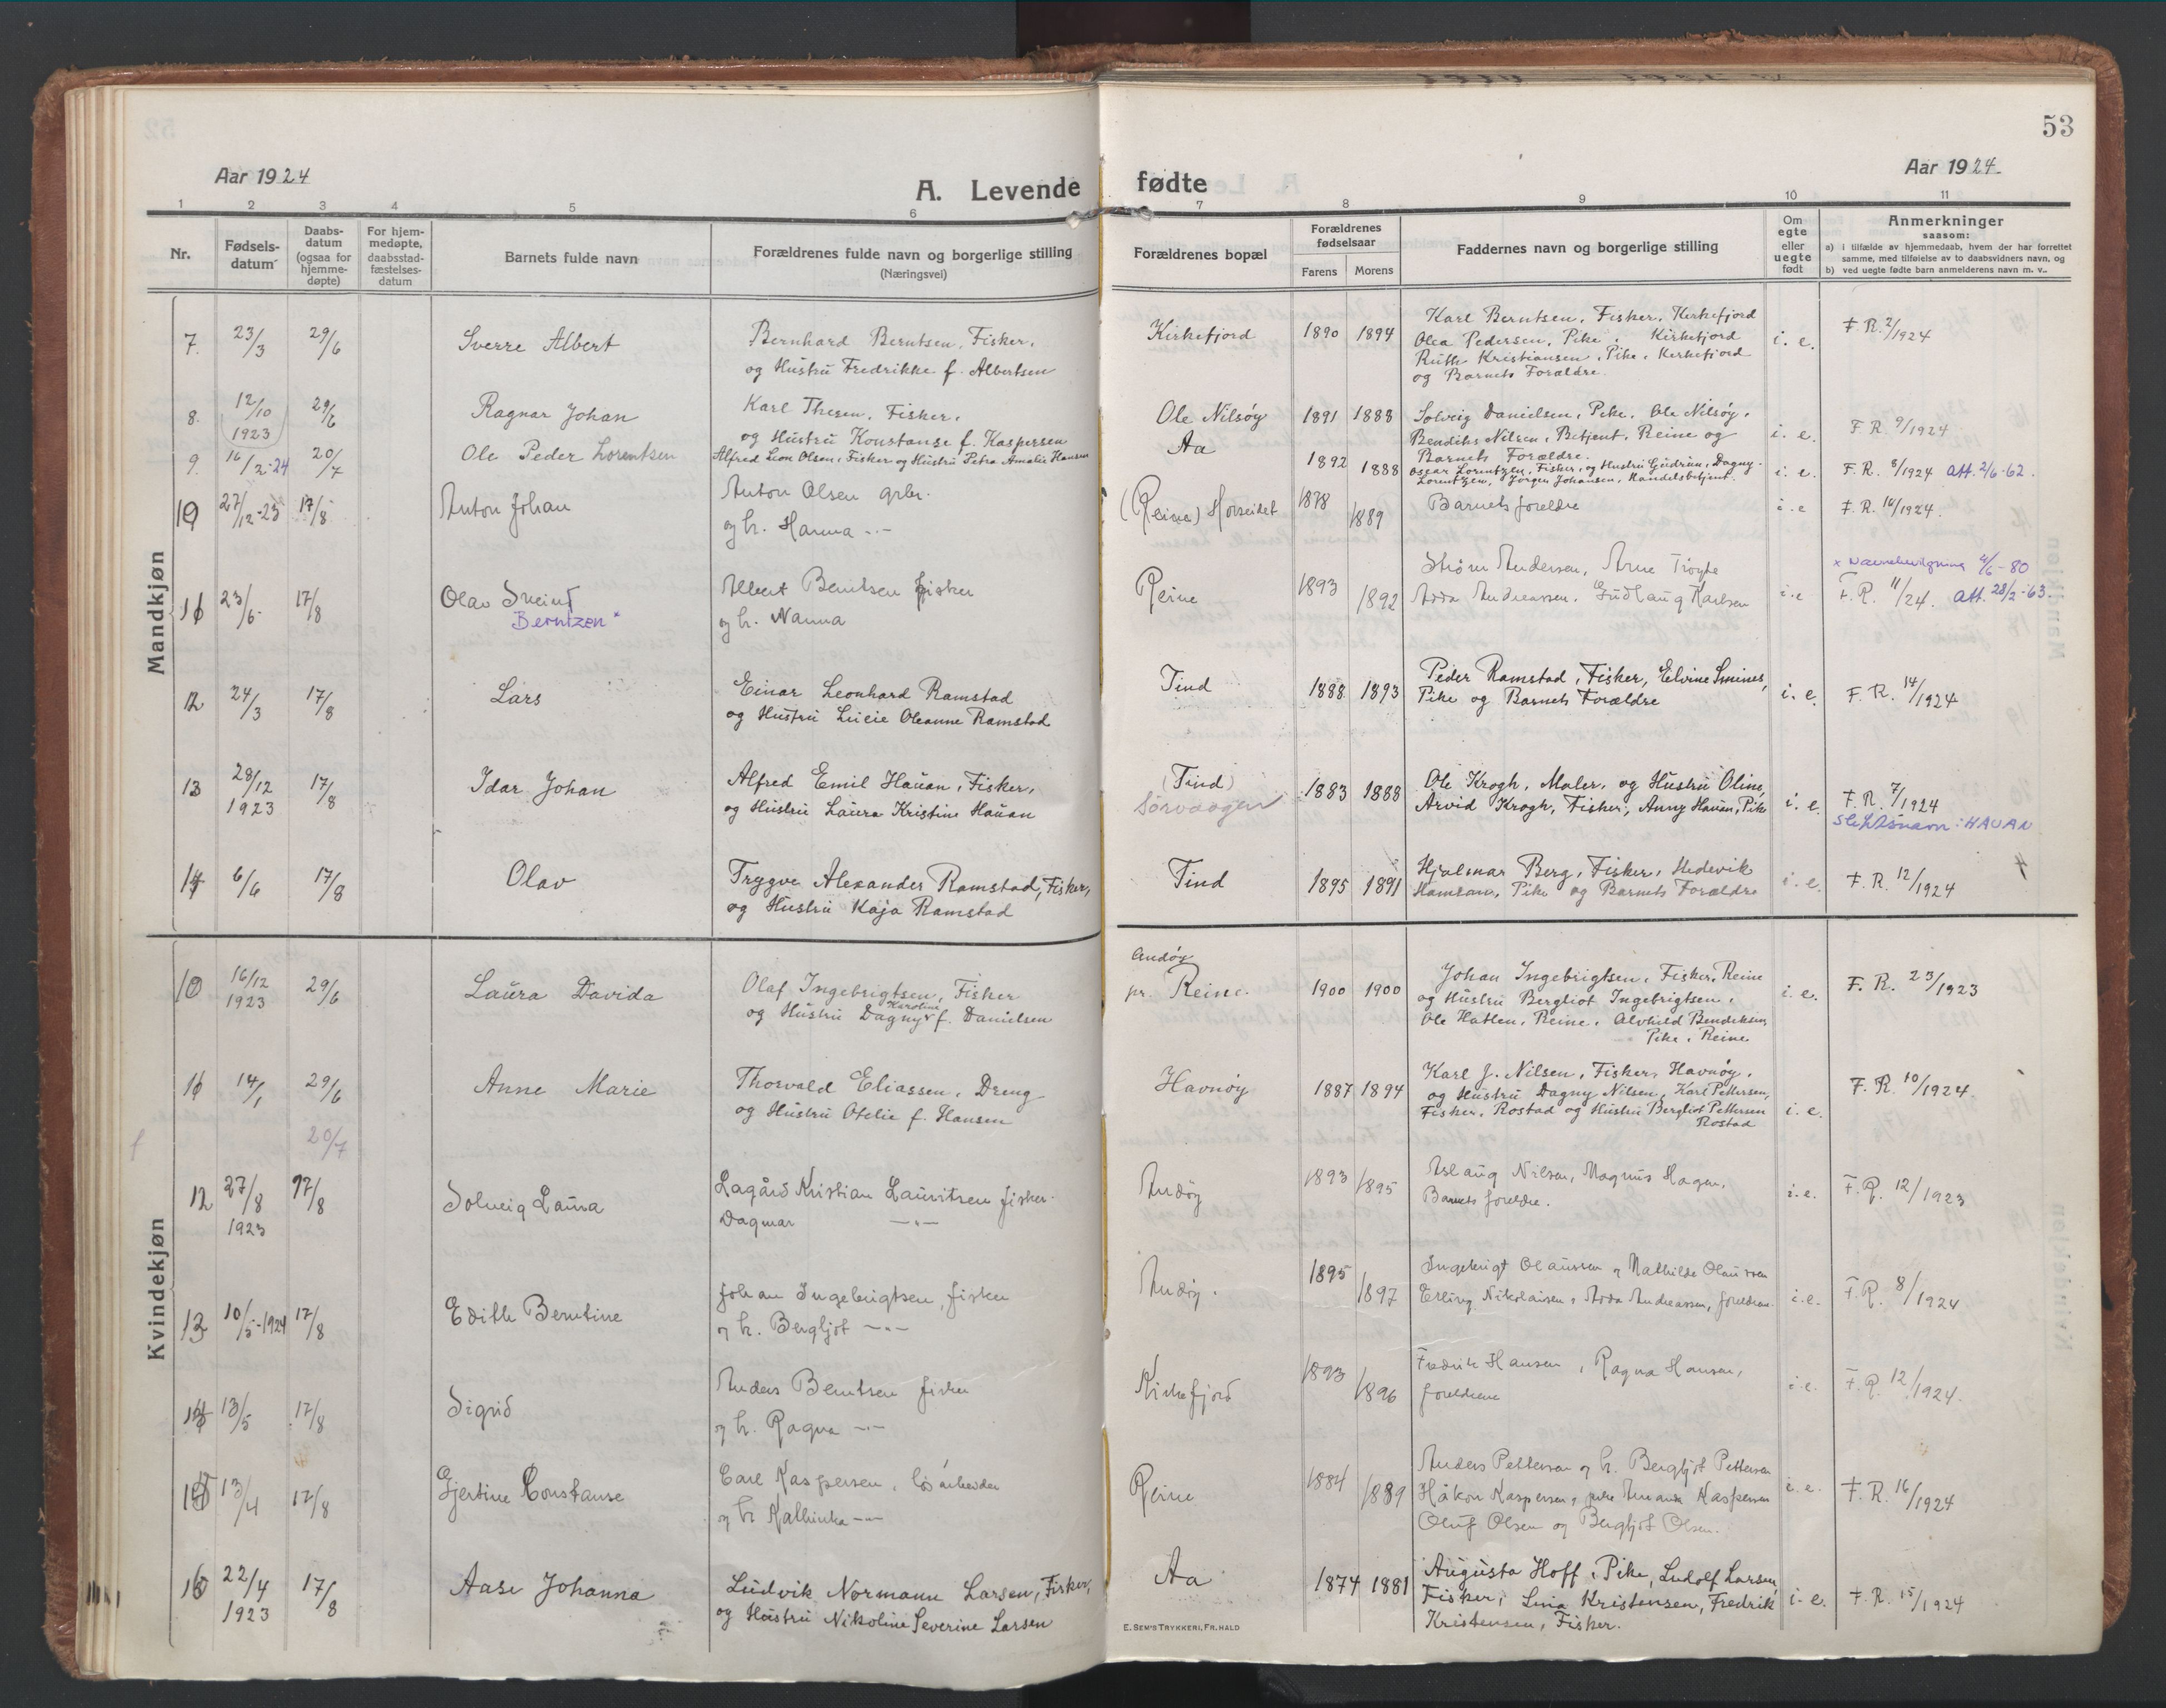 53
Aar 1924
Aar 1924
A. Levende fødte
1 2 3 4 5 6 7 8 9 10 11
Nr.
Fødsels-
datum
Daabs-
datum
(ogsaa for
hjemme-
døpte)
For hjem-
medøpte,
daabsstad-
fæstelses-
datum
Barnets fulde navn
Forældrenes fulde navn og borgerlige stilling
(Næringsvei)
Forældrenes bopæl
Forældrenes
fødselsaar
Farens Morens
Faddernes navn og borgerlige stilling
Om
egte
eller
uegte
født
Anmerkninger
saasom:
a) i tilfælde av hjemmedaab, hvem der har forrettet
samme, med tilføielse av to daabsvidners navn, og
b) ved uegte fødte barn anmelderens navn m. v..
Mandkjøn
7. 23/3 29/6 Sverre Albert
Bernhard Berntsen, Fisker,
og Hustru Fredrikke f. Albertsen
Kirkefjord 1890 1894
Karl Berntsen, Fisker, Kirkefjord
Olea Pedersen, Pike, Kirkefjord
Ruth Kristiansen, Pike, Kirkefjord
og Barnets Forældre.
i. e. F. R. 2/1924
8. 12/10 1923 29/6 Ragnar Johan
Karl Thesen, Fisker,
og Hustru Konstanse f. Kaspersen
Ole Nilsøy 1891 1888
Solveig Danielsen, Pike, Ole Nilsøy,
Bendiks Nilsen, Betjent, Reine og
Barnets Forældre.
i. e. F. R. 9/1924
9. 16/2-24 20/7 Ole Peder Lorentsen
Alfred Leon Olsen, Fisker og Hustru Petra Amalie Hansen
Aa 1892 1888
Oscar Lorentzen, Fisker, og Hustru Gudrun, Dagny
Lorentzen, Jørgen Johansen, Handelsbetjent.
i. e. F. R. 8/1924 Att. 2/6-62.
10 27/12-23 17/8 Anton Johan
Anton Olsen grbr.
og h. Hanna -"-
(Reine) Horseidet 1878 1889
Barnets foreldre
i. e F. R. 16/1924.
11 23/5 17/8 Olav Sveind
Berntzen*
Albert Berntsen fisker
og h. Nanna
Reine 1893 1892
Strøm Andersen, Arne Trøgte
Adda Andreassen. Gudlaug Karlsen
i. e
x Navnebevilgning 4/6-80
F. R. 11/24. Att. 28/2-63.
12 24/3 17/8 Lars
Einar Leonhard Ramstad
og Hustru Lucie Oleanne Ramstad
Tind 1888 1893
Peder Ramstad, Fisker, Elvine Smines,
Pike og Barnets Forældre
i. e. F. R. 14/1924
13 28/12 1923 17/8 Idar Johan
Alfred Emil Hauan, Fisker,
og Hustru Laura Kristine Hauan
(Tind)
Sørvaagen 1883 1888
Ole Krogh, Maler, og Hustru Oline,
Arvid Krogh, Fisker, Anny Hauan, Pike
i. e. F. R. 7/1924
Slektsnavn: HAUAN
14 6/6 17/8 Olav
Trygve Alexander Ramstad, Fisker,
og Hustru Kaja Ramstad
Tind 1895 1891
Hjalmar Berg, Fisker, Hedevik
Hansen, Pike og Barnets Forældre
i. e. F. R. 12/1924
Kvindekjøn
10 16/12 1923 29/6 Laura Davida
Olaf Ingebrigtsen, Fisker
og Hustru Dagny Karoline f. Danielsen
Andøy
pr. Reine. 1900 1900
Johan Ingebrigtsen, Fisker, Reine
og Hustru Bergliot Ingebrigtsen,
Ole Hatlen, Reine, Alvhild Bendiksen,
Pike, Reine
i. e. F. R. 23/1923
11 14/1 29/6 Anne Marie
Thorvald Eliassen, Dreng
og Hustru Otelie f. Hansen
Havnøy 1887 1894
Karl J. Nilsen, Fisker, Havnøy,
og Hustru Dagny Nilsen, Karl Pettersen,
Fisker, Rostad og Hustru Bergliot Pettersen
Rostad
i. e. F. R. 10/1924.
20/7
12 27/8 1923 17/8 Solveig Laura
Lagård Kristian Lauritsen fisker.
Dagmar -"-
Andøy 1893 1895
Aslaug Nilsen, Magnus Hagen,
Barnets foreldre.
i. e. F. R. 12/1923
13 10/5-1924 17/8 Edith Berntine
Johan Ingebrigtsen, fisker
og h. Bergljot -"-
Andøy. 1895 1897
Ingebrigt Olaussen og Mathilde Olaussen
Erling Nikolaisen, Adda Andreassen, foreldrene.
i. e. F. R. 8/1924
14 13/5 17/8 Sigrid
Anders Berntsen fisker
og h. Ragna -"-
Kirkefjord 1893 1896
Fredrik Hansen, Ragna Hansen,
foreldrene
i. e. F. R. 12/1924.
15 13/4 17/8 Gjertine Constanse
Carl Kaspersen, løsarbeider
og h. Kathinka -"-
Reine 1884 1889
Anders Pettersen og h. Bergljot Pettersen
Håkon Kaspersen, pike Amanda Kaspersen
Oluf Olsen og Bergljot Olsen.
i. e. F. R. 16/1924
16 22/4 1923 17/8 Aase Johanna
Ludvik Normann Larsen, Fisker,
og Hustru Nikoline Severine Larsen
Aa 1874 1881
Augusta Hoff, Pike, Ludolf Larsen,
Fisker, Lina Kristensen, Fredrik
Kristensen, Fisker.
i. e. F. R. 15/1924
E. SEM'S TRYKKERI, FR.HALD